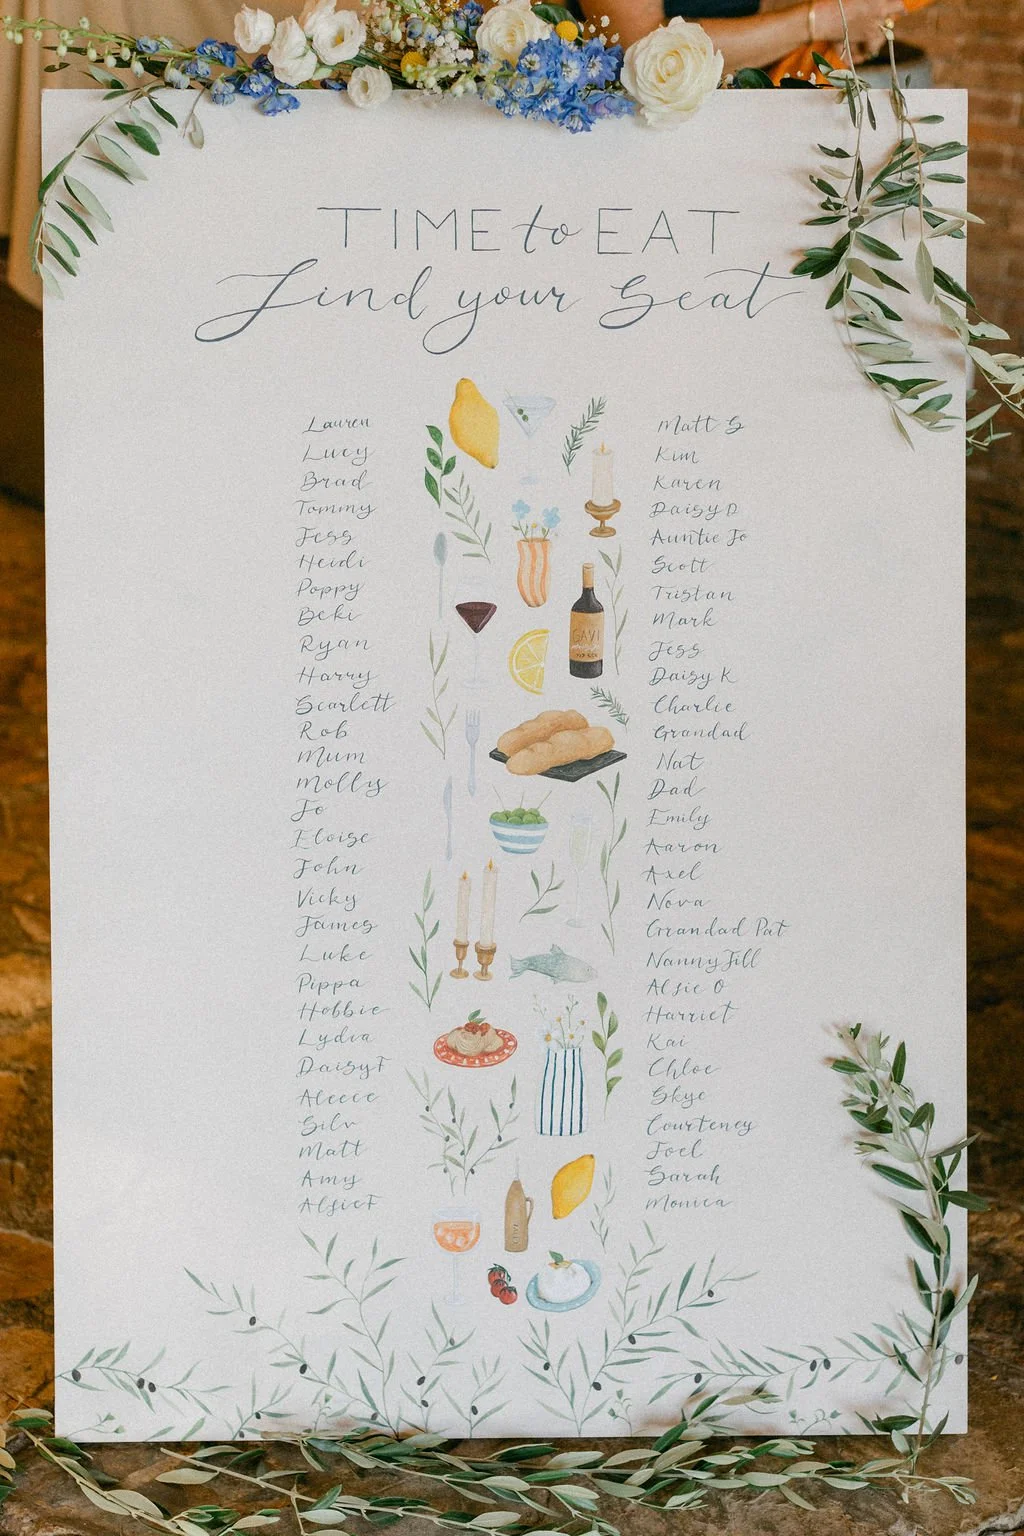 TIME to EAT
Find your Seat
Lauren
Lucy
Brad
Tommy
Jess
Heidi
Poppy
Beki
Ryan
Harry
Scarlett
Rob
Mum
Molly
Jo
Eloise
John
Vicky
James
Luke
Pippa
Hobbie
Lydia
Daisy F
Aleece
Silv
Matt
Amy
Alsie F
GAVI
Matt S
Kim
Karen
Daisy D
Auntie Jo
Scott
Tristan
Mark
Jess
Daisy K
Charlie
Grandad
Nat
Dad
Emily
Aaron
Axel
Nova
Grandad Pat
Nanny Jill
Alsie O
Harriet
Kai
Chloe
Skye
Courteney
Joel
Sarah
Monica